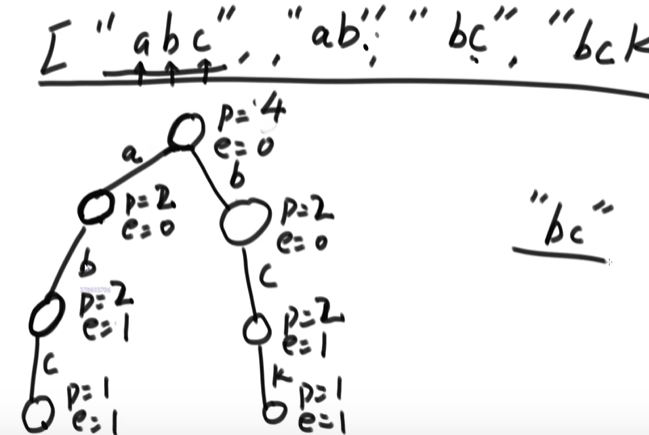 ["abc", "ab", "bc", "bck
p=4
e=0
a
b
p=2
e=0
p=2
e=0
"bc"
b
c
p=2
e=1
p=2
e=1
c
k
p=1
e=1
p=1
e=1